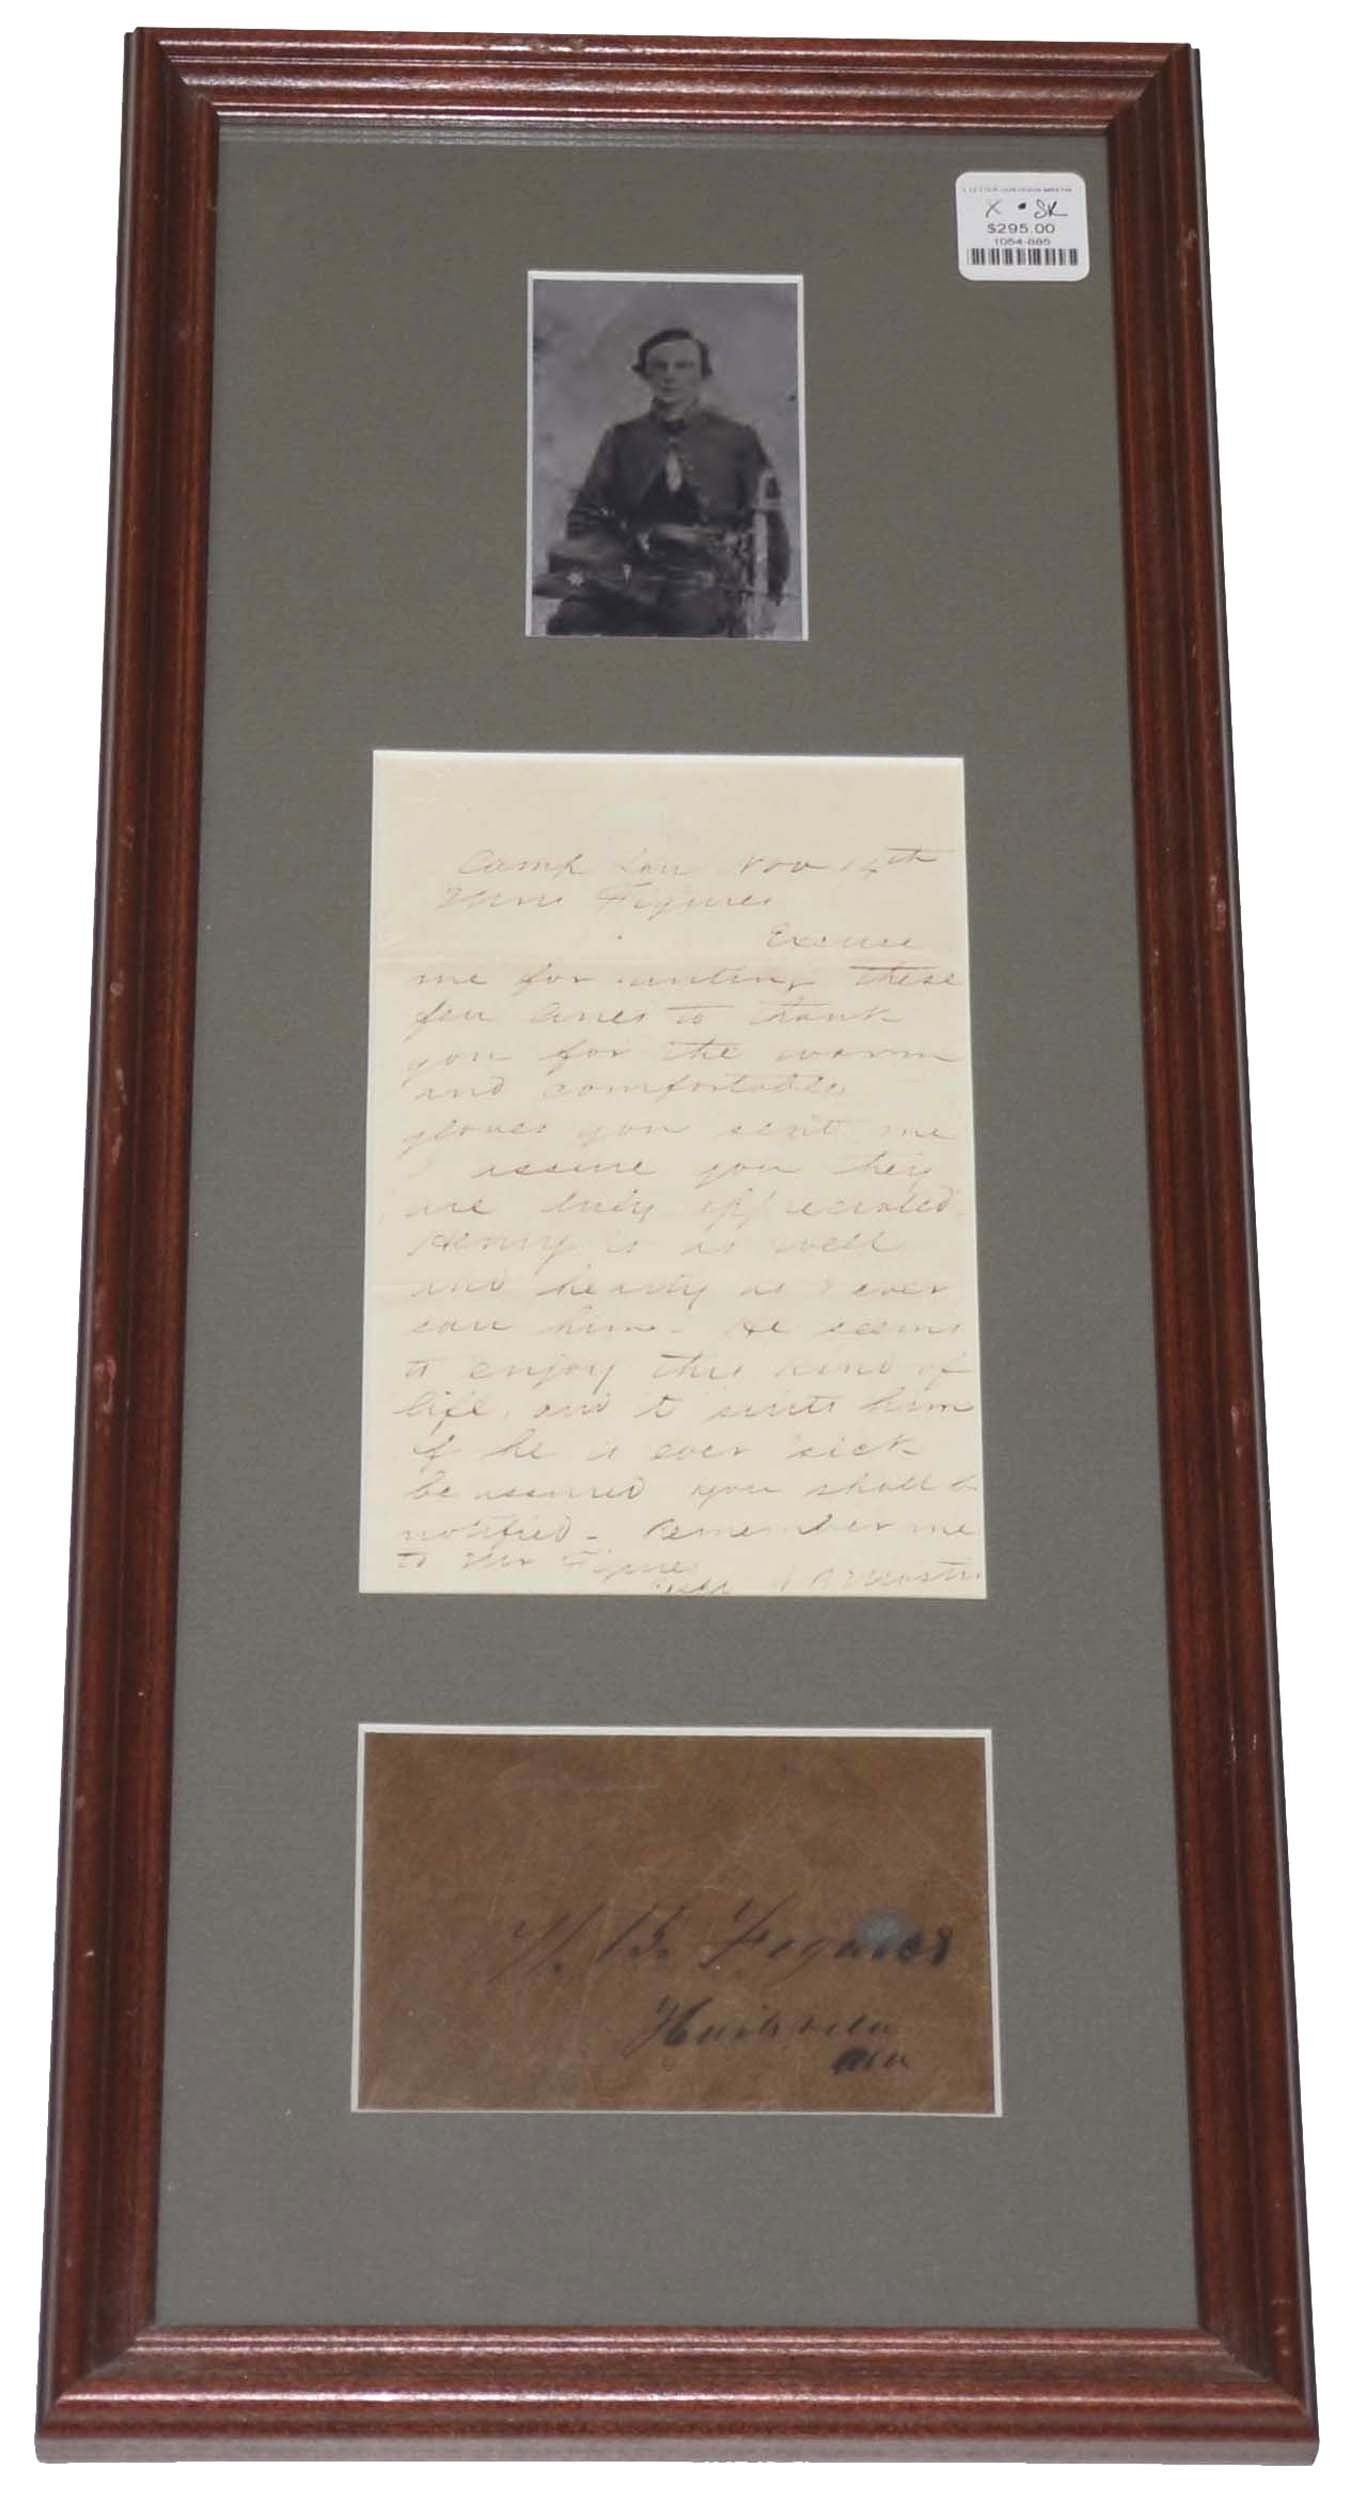 X • SK
$295.00
1054-885
Camp Nov 14th
Mrs Figures
Excuse
me for writing these
few lines to thank
you for the warm
and comfortable
gloves you sent me
I assure you they
are truly appreciated.
Henry is as well
and hearty as I ever
saw him - He seems
to enjoy this kind of
life, and it suits him
If he is ever sick
be assured you shall be
notified - Remember me
to Mr Figures
W. B. Figures
Huntsville
Ala